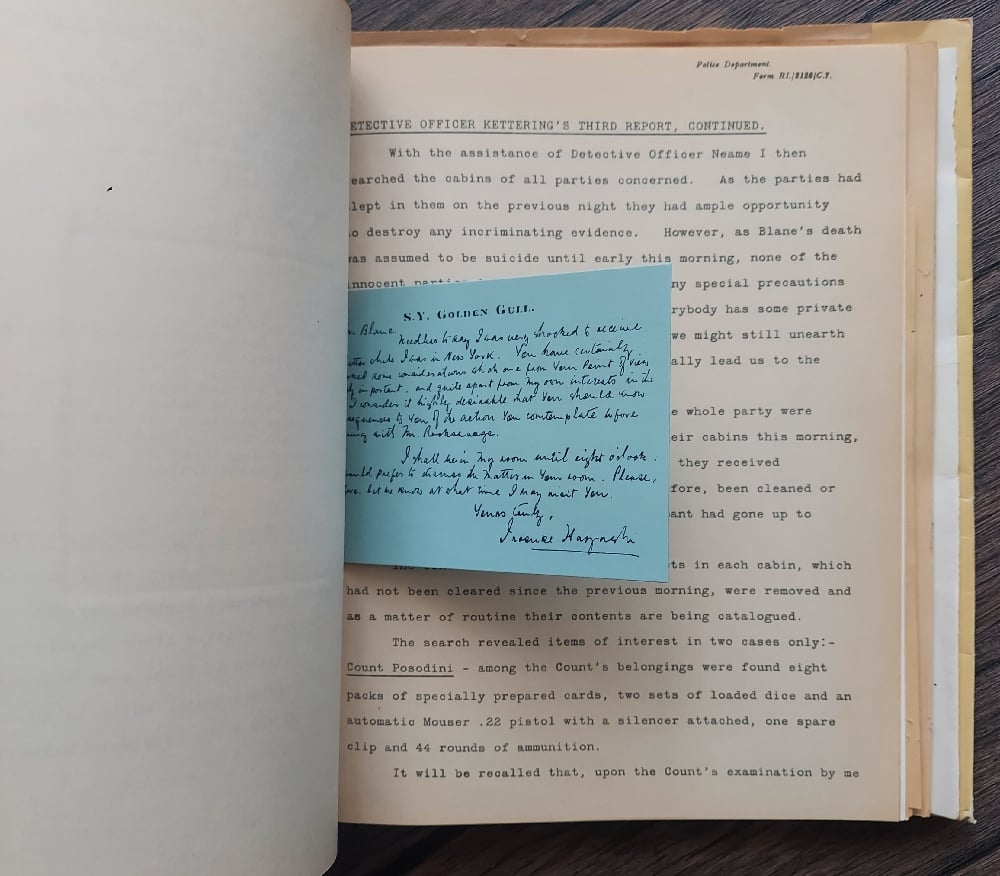 Police Department.
Form RL/2120/C.7.
ETECTIVE OFFICER KETTERING'S THIRD REPORT, CONTINUED.
With the assistance of Detective Officer Neame I then
earched the cabins of all parties concerned. As the parties had
lept in them on the previous night they had ample opportunity
o destroy any incriminating evidence. However, as Blane's death
was assumed to be suicide until early this morning, none of the
innocent
ny special precautions
rybody has some private
we might still unearth
ally lead us to the
e whole party were
eir cabins this morning,
they received
fore, been cleaned or
ant had gone up to
S.Y. GOLDEN GULL.
Blane,
Needless to say I was very shocked to receive
while I was in New York. You have certainly
some considerations which are from Your Point of view
important, and quite apart from my own interests in the
I consider it highly desirable that You should know
to You of the action You contemplate before
with Mr. Rocksavage.
I shall be in my room until eight o'clock.
prefer to discuss the matter in Your room. Please,
let me know at what time I may visit You.
Yours truly,
ts in each cabin, which
had not been cleared since the previous morning, were removed and
as a matter of routine their contents are being catalogued.
The search revealed items of interest in two cases only:-
Count Posodini - among the Count's belongings were found eight
packs of specially prepared cards, two sets of loaded dice and an
automatic Mouser .22 pistol with a silencer attached, one spare
clip and 44 rounds of ammunition.
It will be recalled that, upon the Count's examination by me